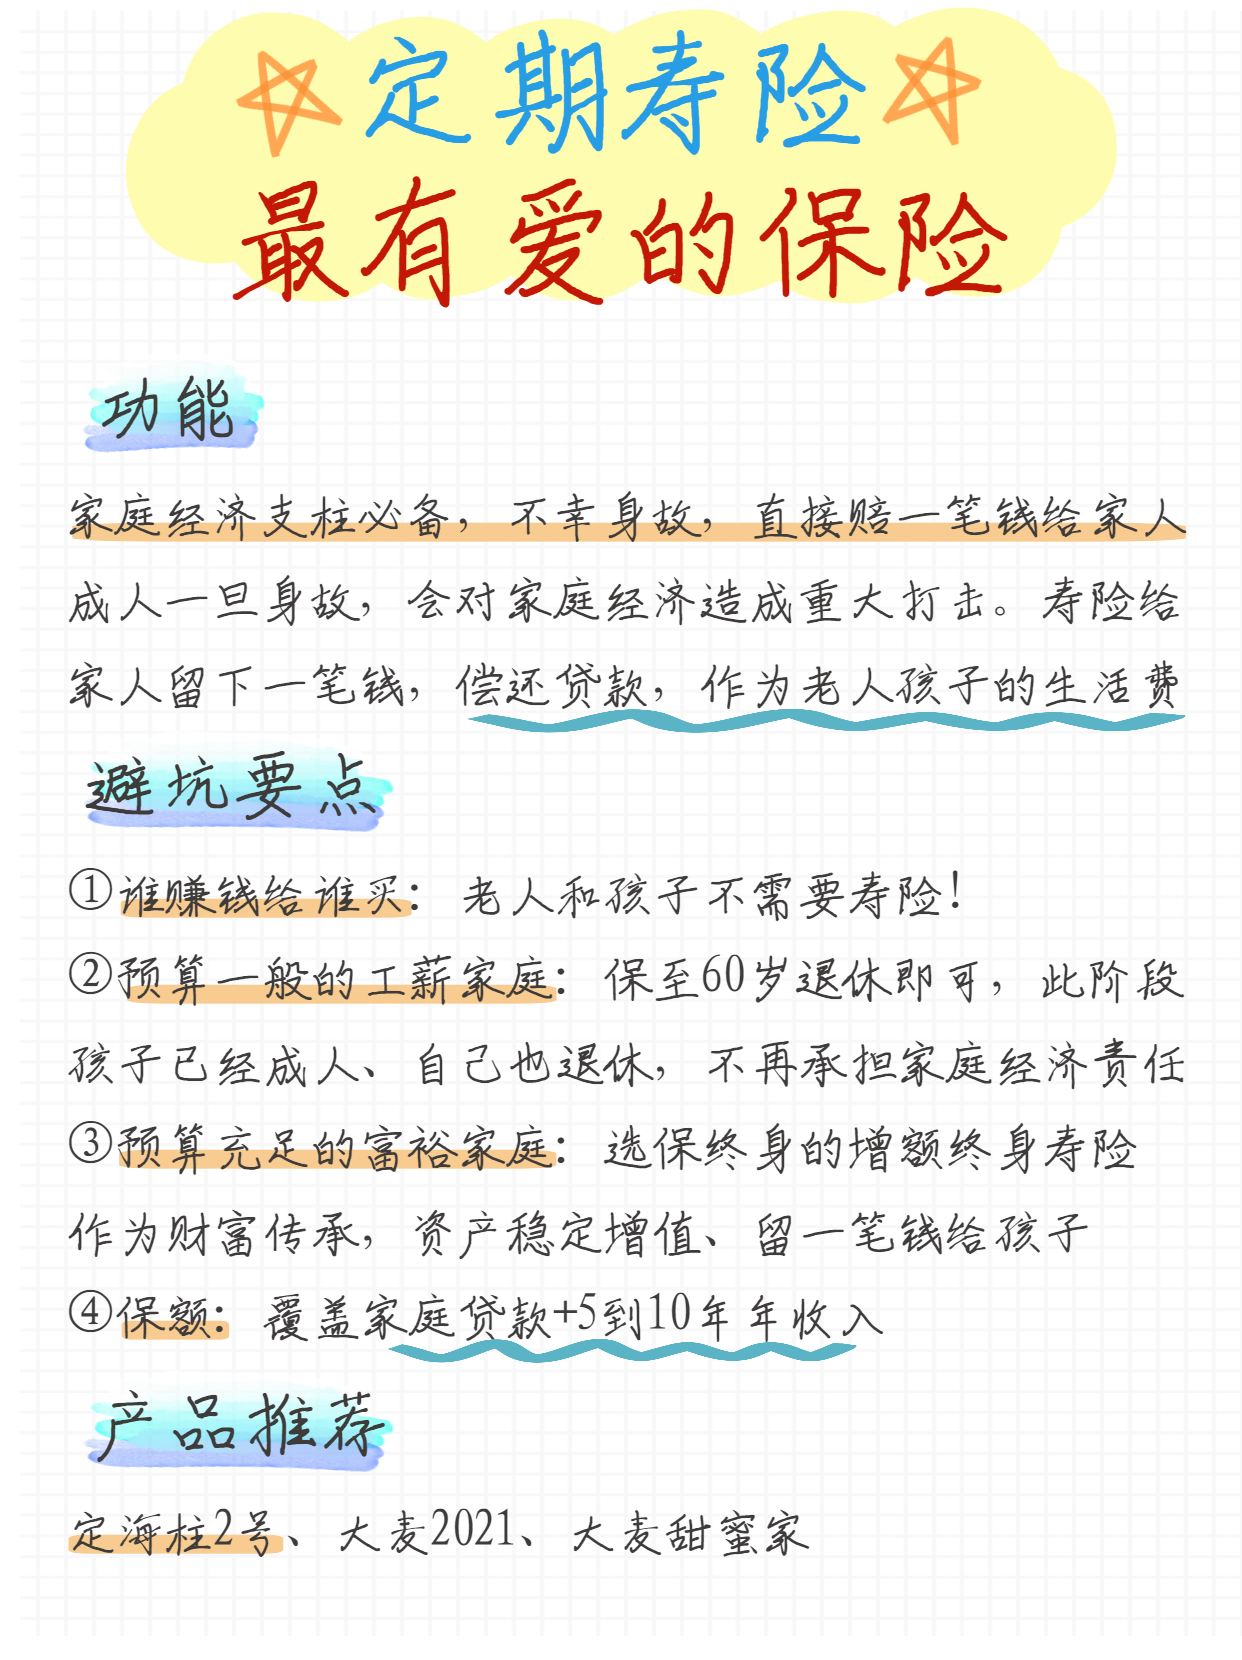 定期寿险
最有爱的保险
功能
家庭经济支柱必备，不幸身故，直接赔一笔钱给家人
成人一旦身故，会对家庭经济造成重大打击。寿险给
家人留下一笔钱，偿还贷款，作为老人孩子的生活费
避坑要点
①谁赚钱给谁买：老人和孩子不需要寿险！
②预算一般的工薪家庭：保至60岁退休即可，此阶段
孩子已经成人、自己也退休，不再承担家庭经济责任
③预算充足的富裕家庭：选保终身的增额终身寿险
作为财富传承，资产稳定增值、留一笔钱给孩子
④保额：覆盖家庭贷款+5到10年年收入
产品推荐
定海柱2号、大麦2021、大麦甜蜜家